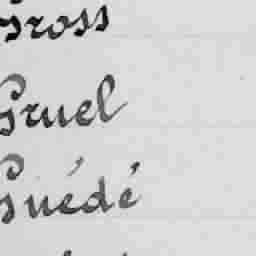 Gross
Gruel
Guédé